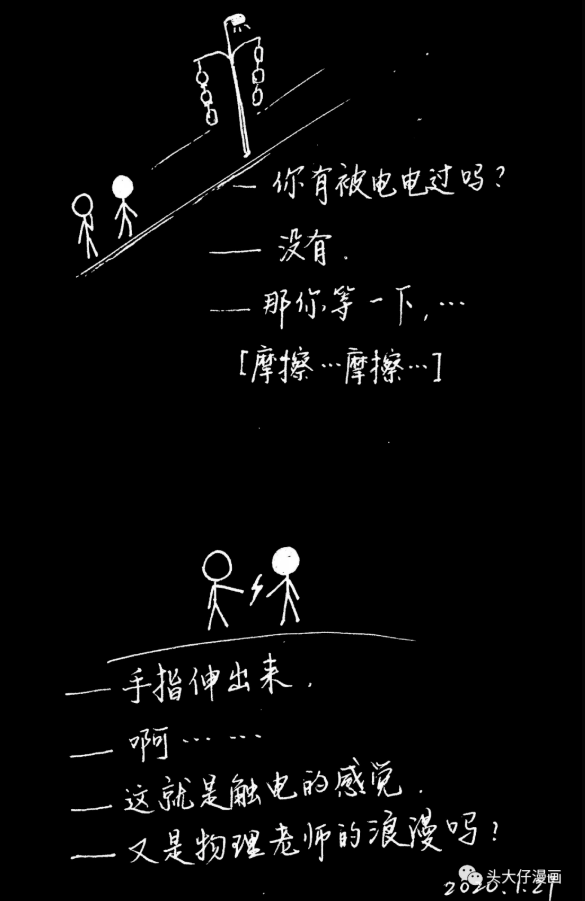 — 你有被电电过吗?
— 没有.
— 那你等一下,…
[摩擦…摩擦…]
— 手指伸出来.
— 啊……
— 这就是触电的感觉.
— 又是物理老师的浪漫吗?
头大仔漫画
2020.1.21